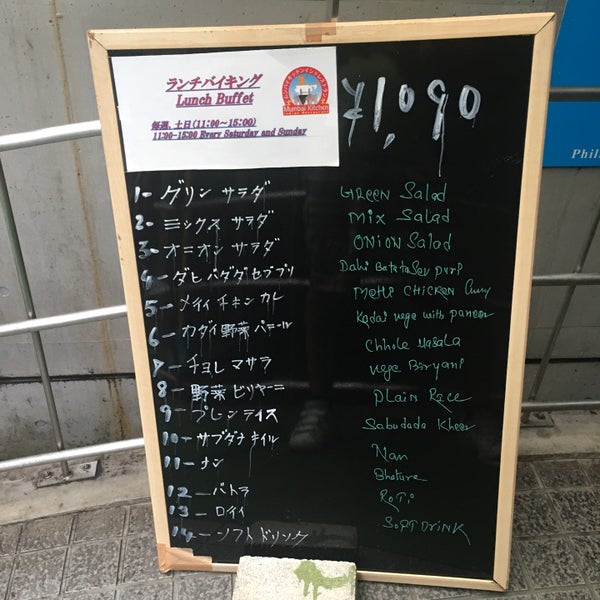 ランチバイキング
Lunch Buffet
Mumbai Kitchen
毎週、土日(11:00～15:00)
11:00-15:00 Every Saturday and Sunday
¥1,090
1- グリン サラダ GREEN Salad
2- ミックス サラダ Mix Salad
3- オニオン サラダ ONION Salad
4- ダヒ バダダ セブ プリ Dahi Batata Sev puri
5- メイイ チキン カレ MeHi CHICKEN Curry
6- カダイ 野菜 パニール Kadai vege with paneer
7- チョレ マサラ Chhole Masala
8- 野菜 ビリヤーニ vege Biryani
9- プレン ライス Plain Race
10- サブダナ キイル Sabudada Kheer
11- ナン Nan
12- バトラ Bhature
13- ロイイ RoTi
14- ソフト ドリンク SOFT DRINK
Phil